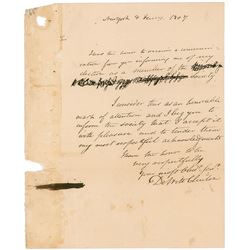 Newyork 4 1807
I have the honor to receive a communi-
cation from you informing me of my
election as a member of the
Society
I consider this as an honorable
mark of attention and I beg you to
inform the society that I accept it
with pleasure and to tender them
my most respectful acknowledgments
I have the honor to be
very respectfully
Your most Obedt servt
DeWitt Clinton